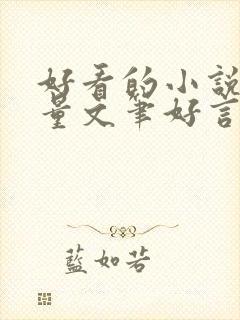 好看的小說
量文筆好言
藍如若